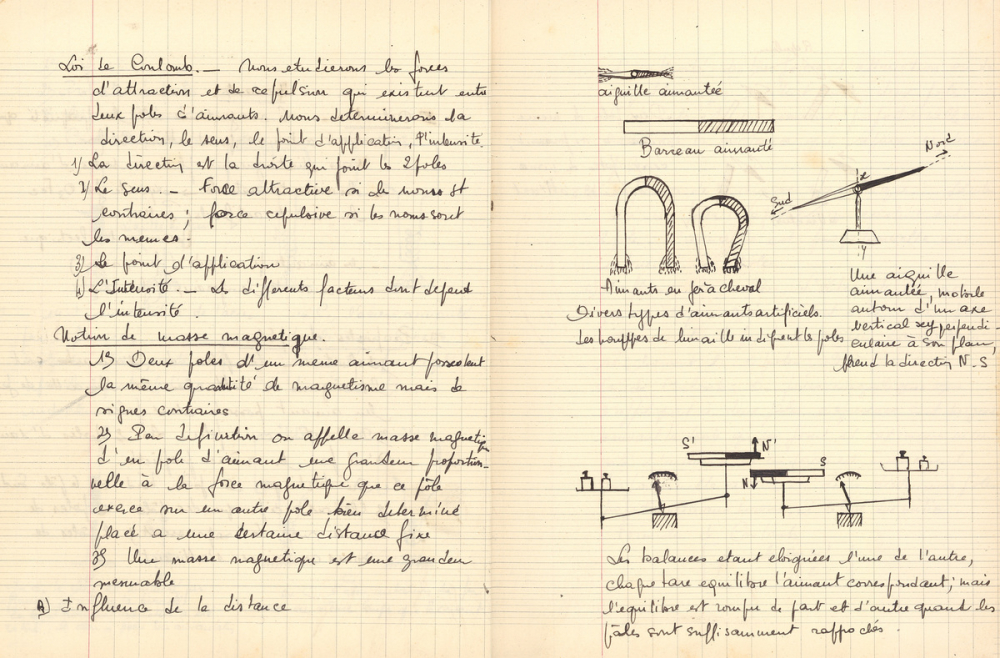 Loi de Coulomb. — Nous etudierons les forces
d'attraction et de repulsion qui existent entre
deux poles d'aimants. Nous determinerons la
direction, le sens, le point d'application, l'intensite.
1) La direction est la droite qui joint les 2 poles
2) Le sens. — Force attractive si les noms st
contraires ; force repulsive si les noms sont
les memes.
3) Le point d'application
4) L'Intensité. — Les differents facteurs dont depend
l'intensité.
Notion de masse magnetique.
1°) Deux poles d'un meme aimant possedent
la même quantité de magnetisme mais de
signes contraires
2°) Par definition on appelle masse magnetique
d'un pole d'aimant une grandeur proportion-
nelle à la force magnetique que ce pôle
exerce sur un autre pole bien determiné
placé a une certaine distance fixe
3°) Une masse magnetique est une grandeur
mesurable
A) Influence de la distance
aiguille aimantée
Barreau aimanté
Aimants en fer à cheval
Divers types d'aimants artificiels.
Les houppes de limaille indiquent les poles
Nord
Sud
x
y
Une aiguille
aimantée, mobile
autour d'un axe
vertical xy perpendi-
culaire à son plan,
prend la direction N-S
S'
N'
N
S
Les balances etant eloignées l'une de l'autre,
chaque tare equilibre l'aimant correspondant; mais
l'equilibre est rompu de part et d'autre quand les
pôles sont suffisamment rapprochés.